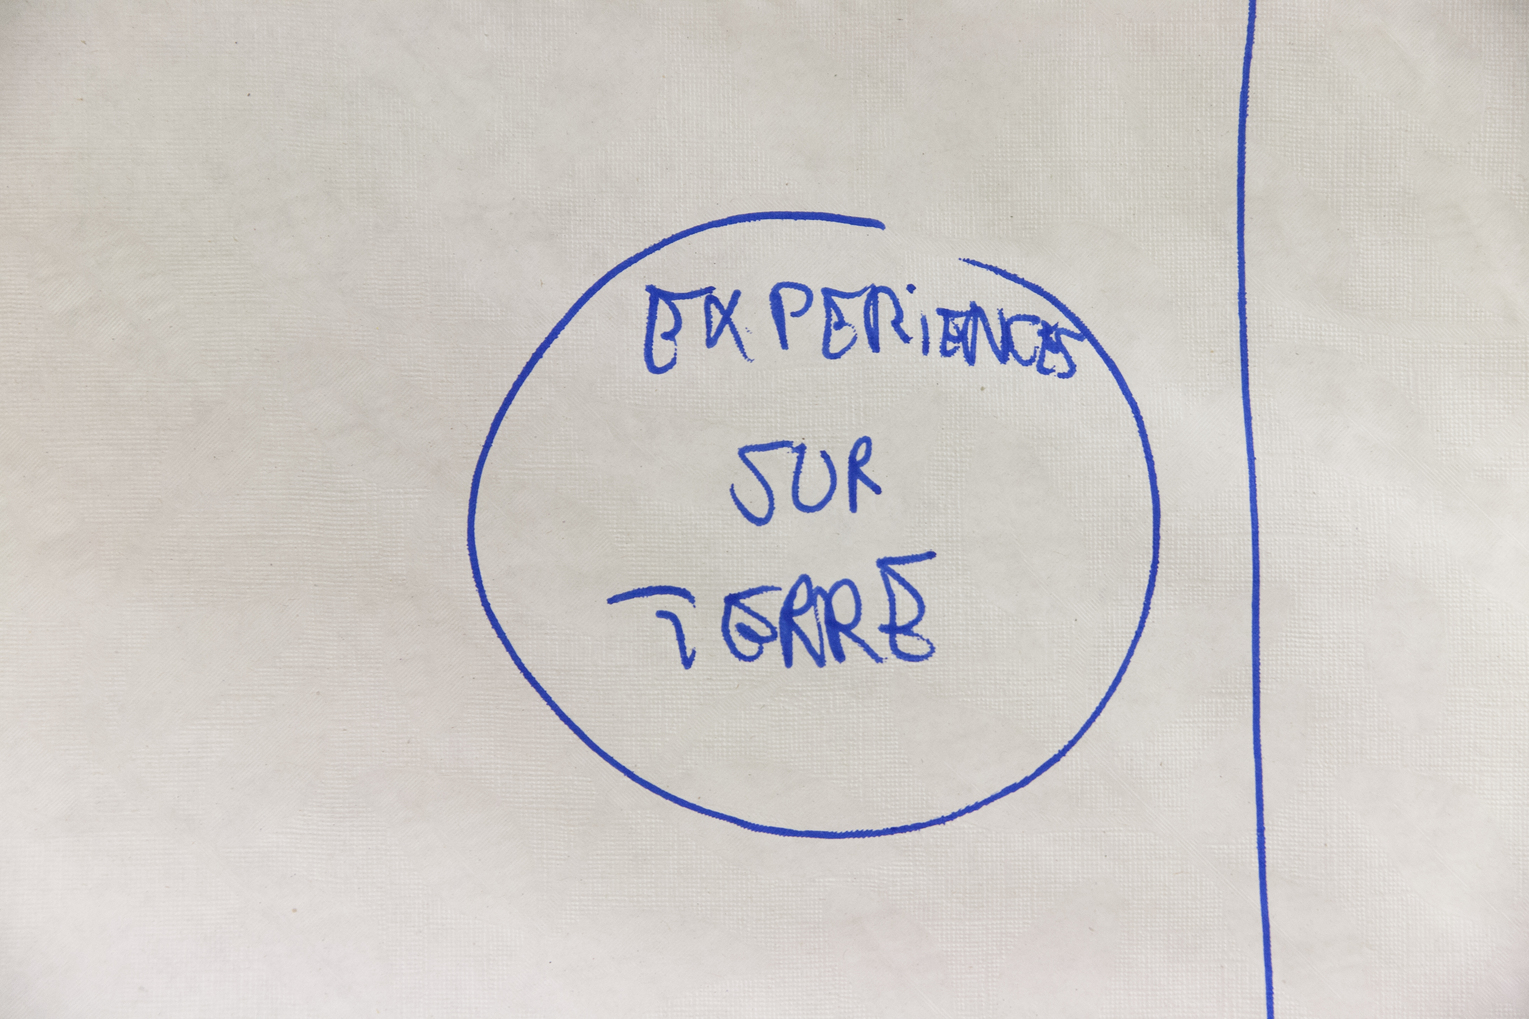 EXPERiENCES
SUR
TERRE